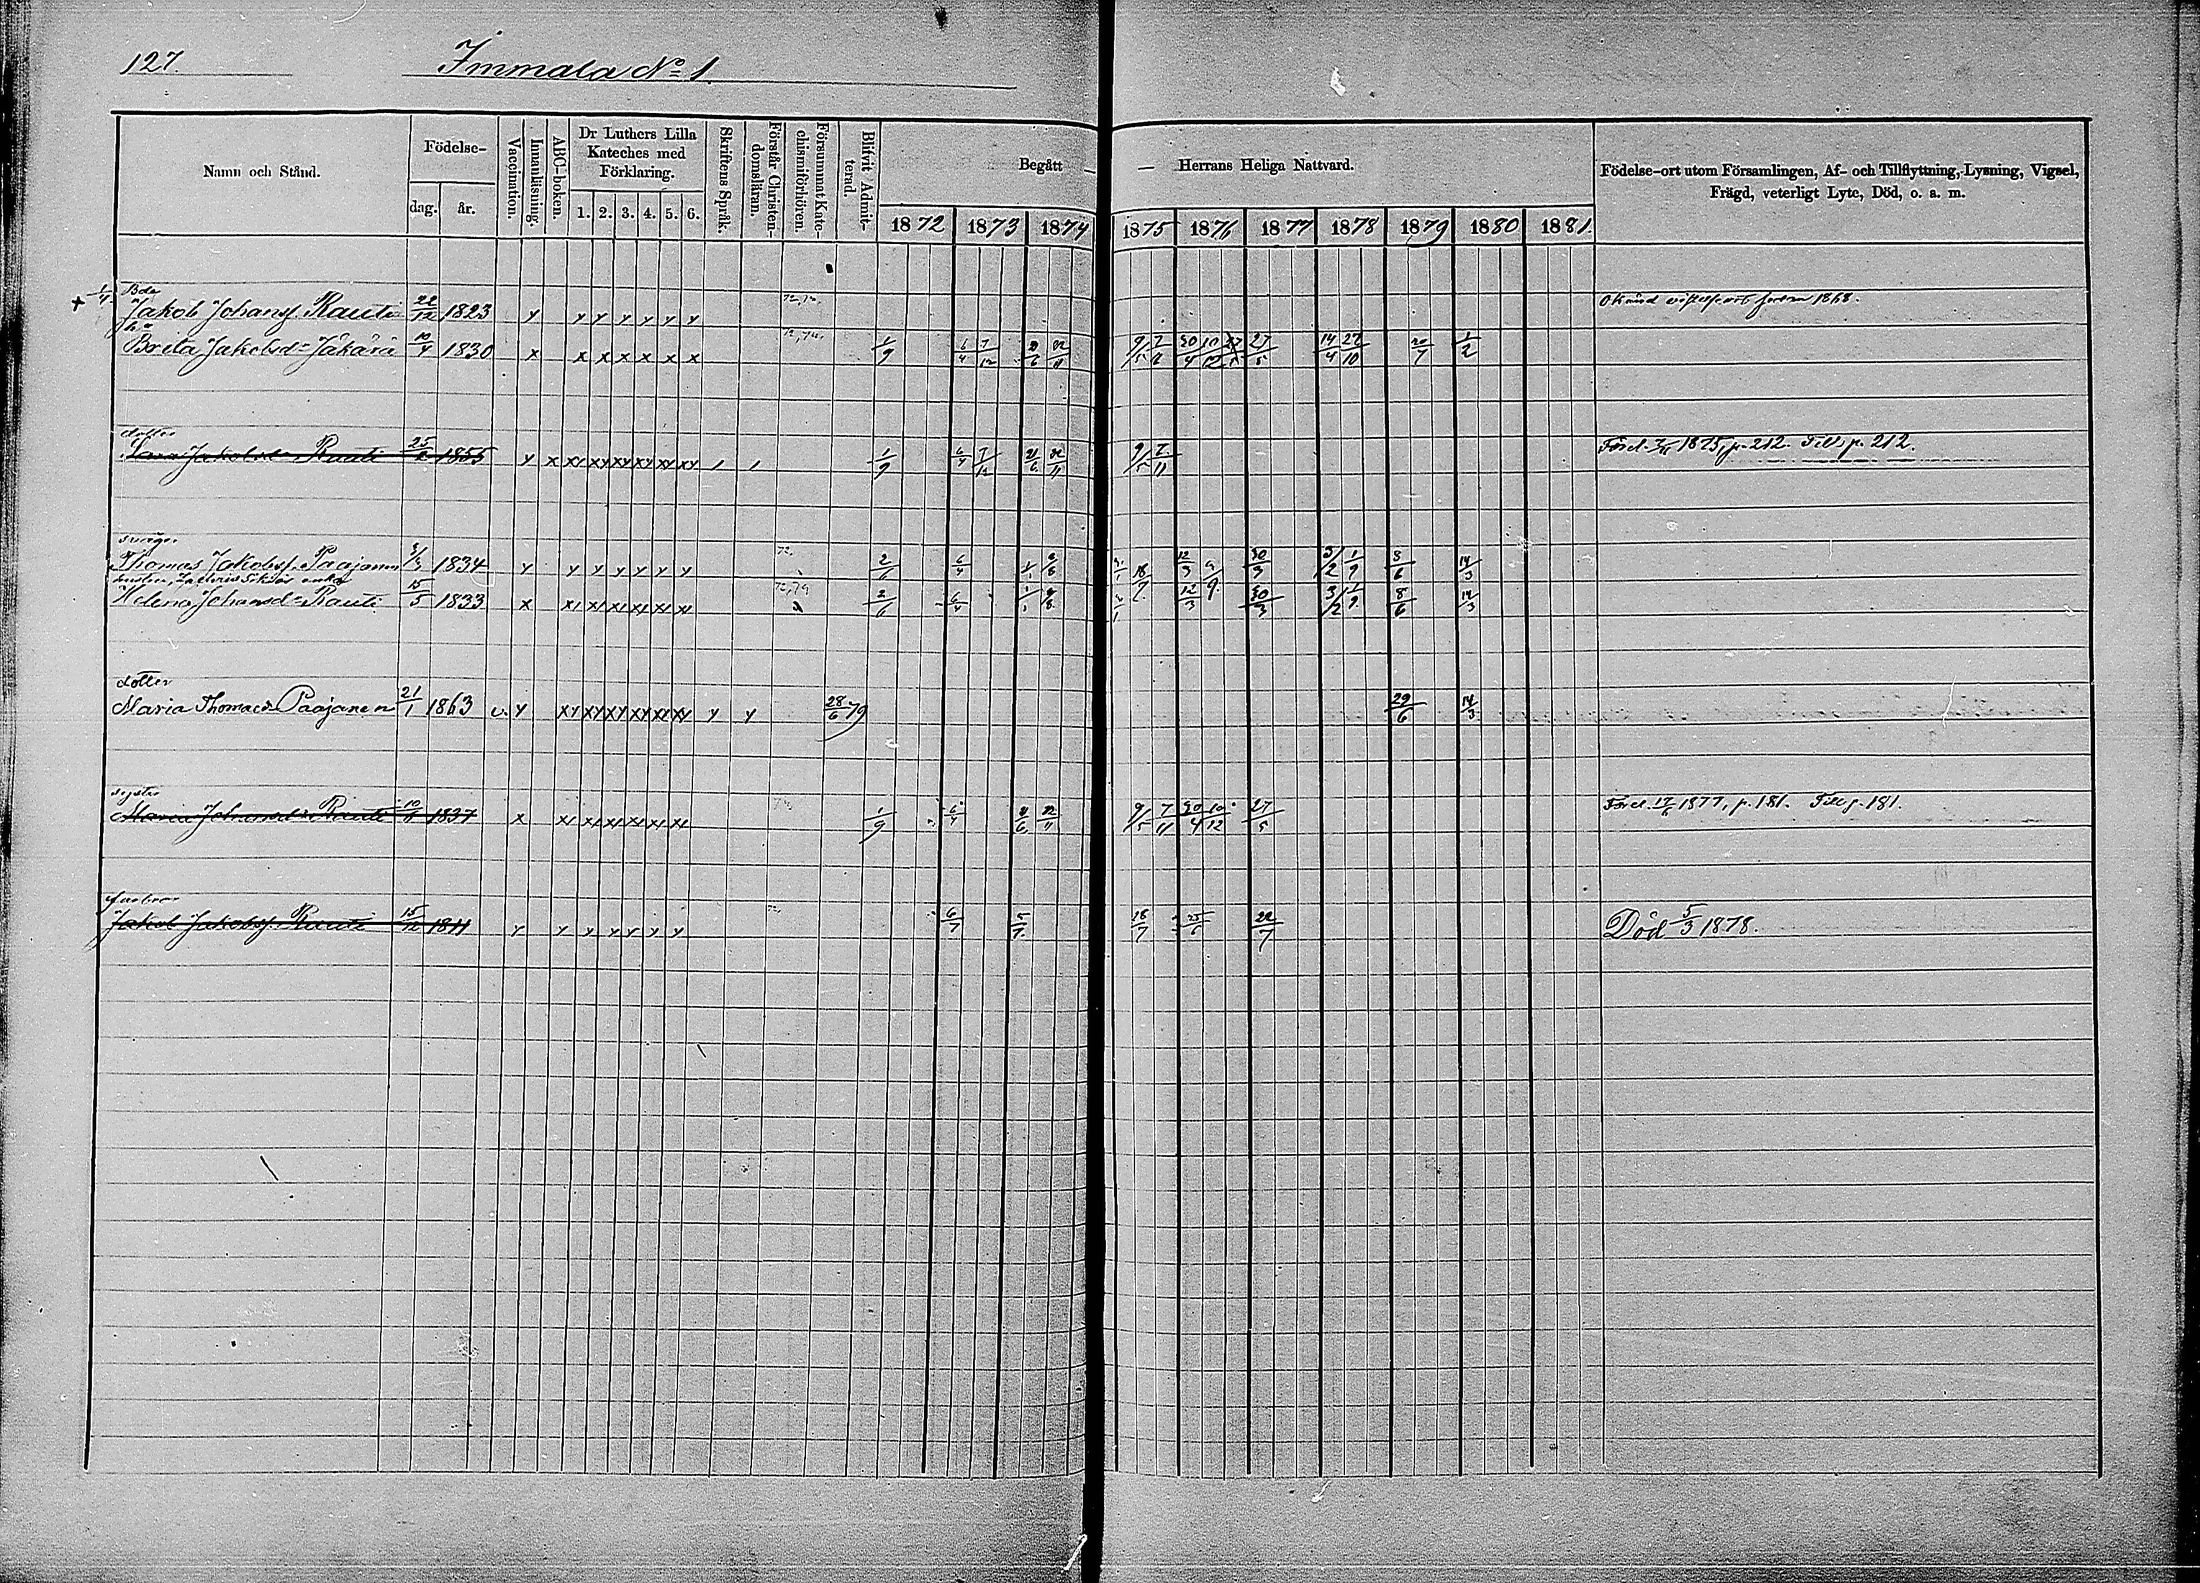 127.
Immala No 1
Namn och Stånd.
Födelse-
dag. år.
Vaccination.
Innanläsning.
ABC-boken.
Dr Luthers Lilla Kateches med Förklaring.
1. 2. 3. 4. 5. 6.
Skriftens Språk.
Förstår Christendomsläran.
Försummat Katechismiförhören.
Blifvit Admitterad.
Begått — — Herrans Heliga Nattvard.
1872 1873 1874 1875 1876 1877 1878 1879 1880 1881
Födelse-ort utom Församlingen, Af- och Tillflyttning, Lysning, Vigsel,
Frägd, veterligt Lyte, Död, o. a. m.
Bde
Jakob Johansf. Rauti 22/12 1823 y y y y y y y
Okänd vistelseort sedan 1868.
Breta Jakobsd. Jäkärä 10/4 1830 x x x x x x x 1/9 6/4 7/12 14/4 27/10 20/7 1/2
dotter
Sara Jakobsd. Rauti 1855 y x xy xy xy xy xy xy 1/9 6/4 7/12 9/5 7/11
1875, p. 212. Till p. 212.
Thomas Jakobsf. Paajanen 1834 y y y y y y y 2/6 6/4 12/3 30/3 3/2 1/9 8/6 14/3
Helena Johansd. Rauti 15/5 1833 2/6 6/4 12/3 30/3 3/2 1/9 8/6 14/3
dotter
Maria Thomasd. Paajanen 21/1 1863 v. y xy xy xy xy xy xy y y 28/6 79 29/6 14/3
syster
Maria Johansd. Rauti 1837 1/9 6/4 9/5 7/11 30/4 10/12 27/5
1877, p. 181. Till p. 181.
farbror
Jakob Jakobsf. Rauti 15/12 1811 y y y y y y y 6/7 5/7 18/7 22/7
Död 5/3 1878.